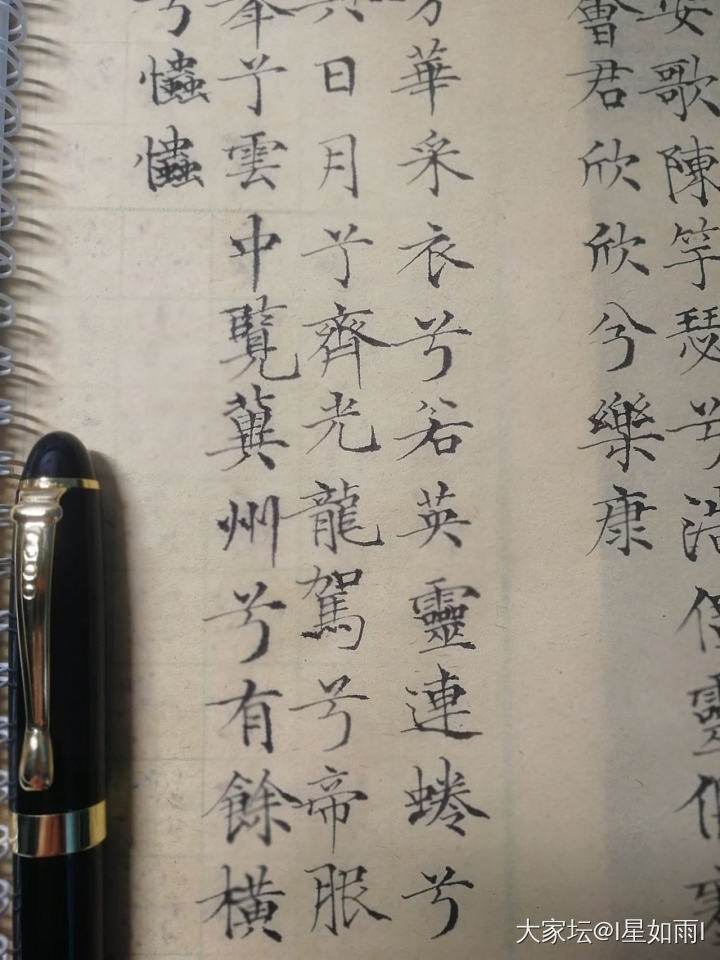 安歌陳竽瑟兮浩倡靈偃
會君欣欣兮樂康
華采衣兮若英靈連蜷兮
日月兮齊光龍駕兮帝服
舉兮雲中覽冀州兮有餘橫
兮𢥞𢥞
大家坛@I星如雨I